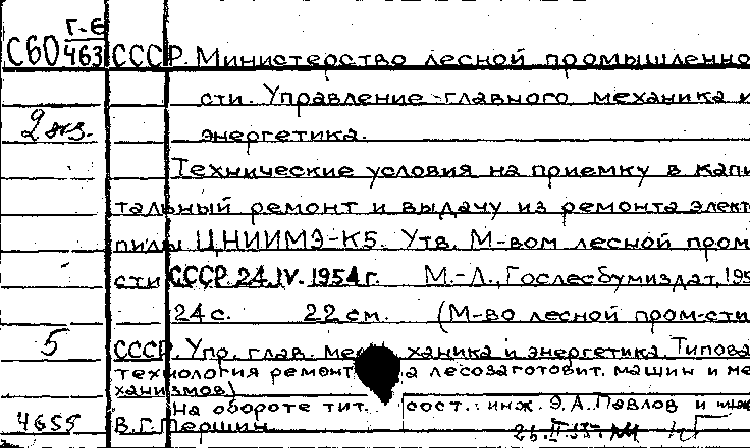 Г-6
С60 463 СССР. Министерство лесной промышленно
сти. Управление главного механика и
2 экз. энергетика.
Технические условия на приемку в капи
тальный ремонт и выдачу из ремонта элект
пилы ЦНИИМЭ-К5. Утв. М-вом лесной пром
сти СССР 24.IV.1954г. М.-Л., Гослесбумиздат, 195
24с. 22см. (М-во лесной пром-сти
5 СССР. Упр. глав. ме ханика и энергетика. Типова
технология ремонт а лесозаготовит. машин и ме
ханизмов)
на обороте тит. сост.: инж. Э.А. Павлов и инж
4655 В.Г. Першин